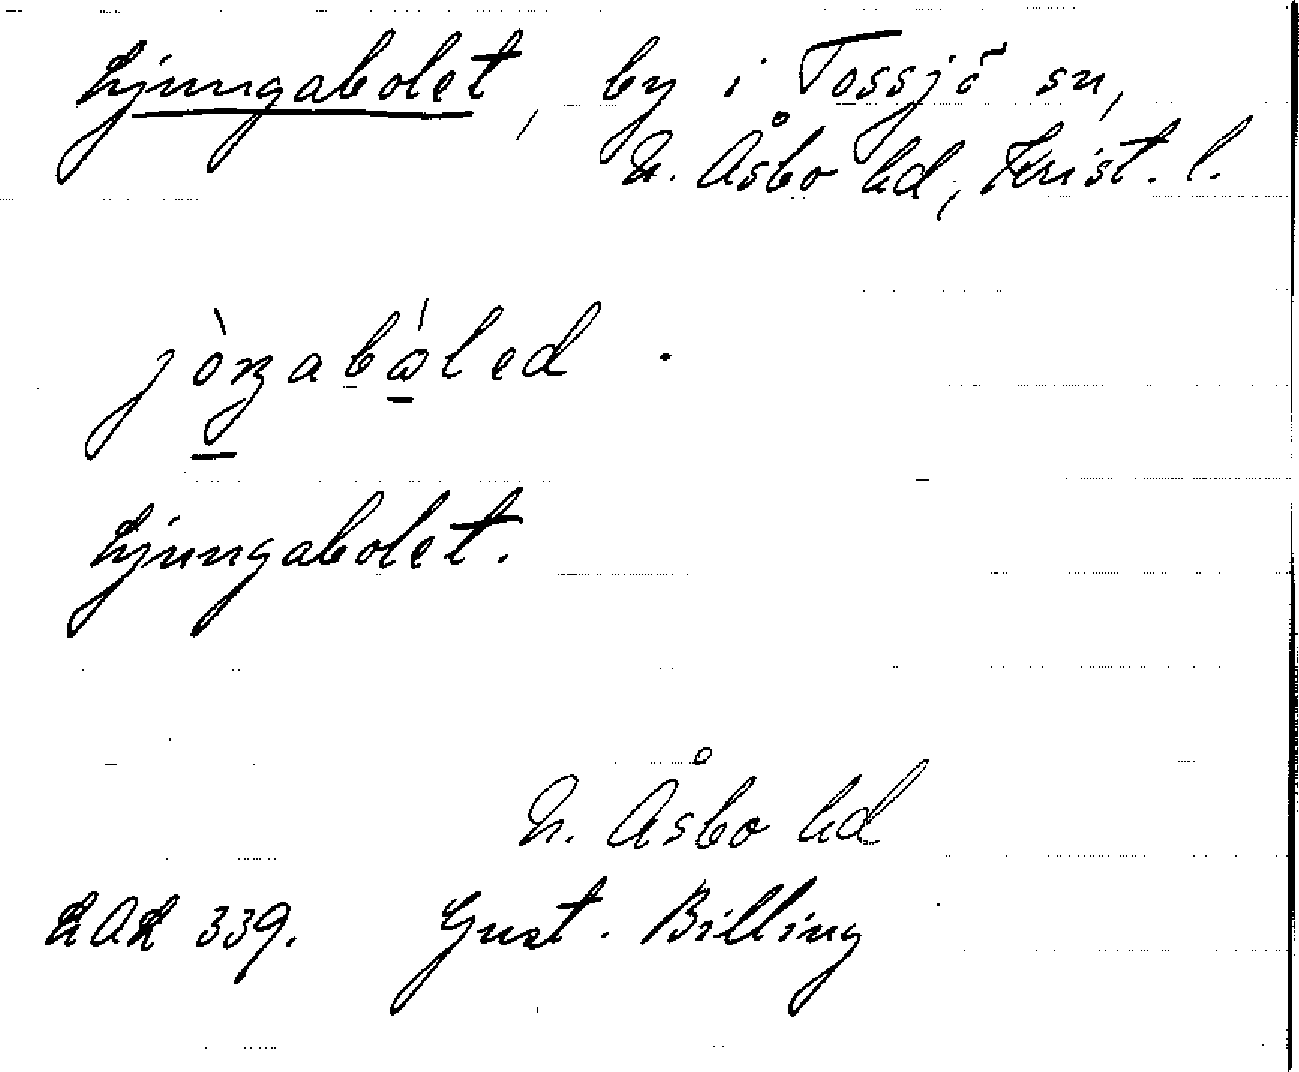 Ljungabolet, by i Tossjö sn,
N. Åsbo hd, Krist. l.
Ljungabolet.
N. Åsbo hd
LAL 339. Gust. Billing